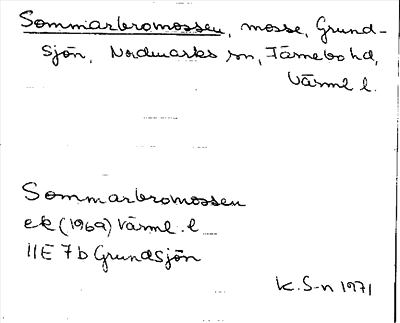 Sommarbromossen, mosse, Grund-
sjön, Nordmarks sn, Färnebo hd,
Värml l.
Sommarbromossen
ek (1969) Värml. l
11E 7b Grundsjön
K. S-n 1971